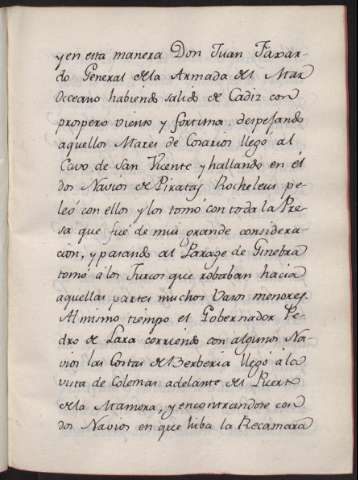 y en esta manera Don Juan Faxar-
do General de la Armada del Mar
Oceano habiendo salido de Cadiz con
prospero viento y fortuna, despejando
aquellos Mares de Cosarios llegó al
Cavo de San Vicente y hallando en él
dos Navios de Piratas Rocheleses pe-
leó con ellos y los tomó con toda la Pre-
sa que fué de mui grande considera-
cion, y pasando al Parage de Ginebra
tomó à los Turcos que robaban hacia
aquellas partes muchos Vasos menores.
Al mismo tiempo el Gobernador Pe-
dro de Lara corriendo con algunos Na-
vios las Costas de Berberia llegó à la
vista de Colenas adelante del Puerto
de la Mamora, y encontrandose con
dos Navios en que hiba la Recamara